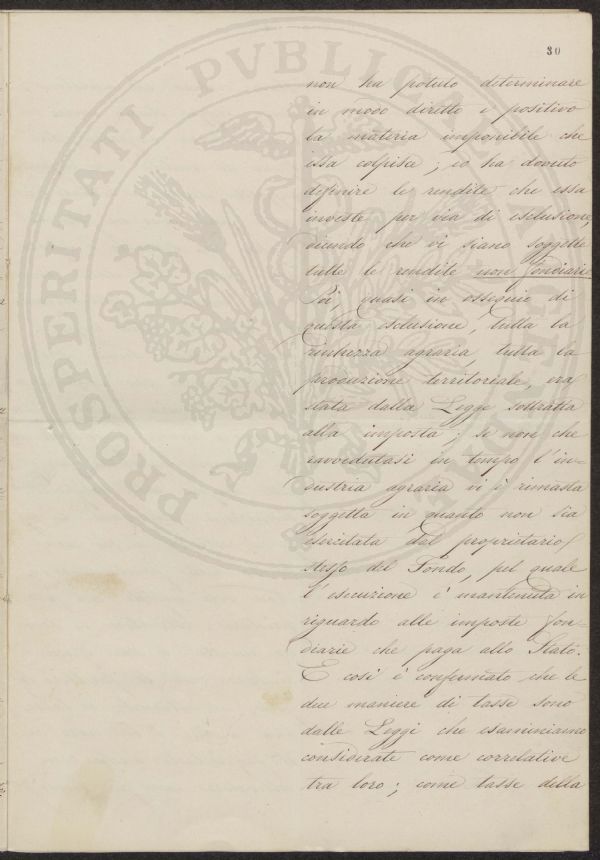 30
non ha potuto determinare
in modo diretto e positivo
la materia imponibile che
essa colpisce; io ha dovuto
definire le rendite che essa
investe per via di esclusione,
dicendo che vi siano soggette
tutte le rendite non fondiarie.
Poi, quasi in ossequio di
questa esclusione, tutta la
ricchezza agraria tutta la
produzione territoriale, era
stata dalla Legge sottratta
alla imposta; se non che
ravvedutasi in tempo l'in-
dustria agraria vi è rimasta
soggetta in quanto non sia
esercitata dal proprietario
stesso del Fondo, pel quale
l'esenzione è mantenuta in
riguardo alle imposte fon-
diarie che paga allo Stato.
E così è confermato che le
due maniere di tasse sono
dalle Leggi che esaminiamo
considerate come correlative
tra loro; come tasse della
PROSPERITATI PVBLICAE AVGENDAE